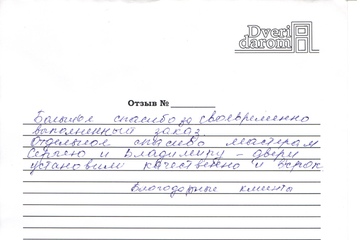 Dveri
darom
Отзыв №
Большое спасибо за своевременно
выполненный заказ
Отдельное спасибо мастерам
Сергею и Владимиру - двери
установили качественно и в срок
Благодарные клиенты